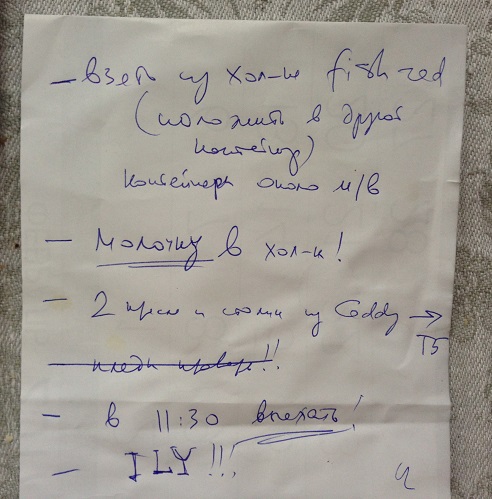 – взеть из хол-ке fish red
(положить в другой
контейнер)
контейнеры около м/в
– Молочку в хол-к!
– 2 кресла и столик из Caddy →
T5
пледы !!
– в 11:30 выехать!
– ILY!!!